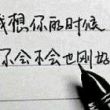 我想你的时候
你会不会也刚好